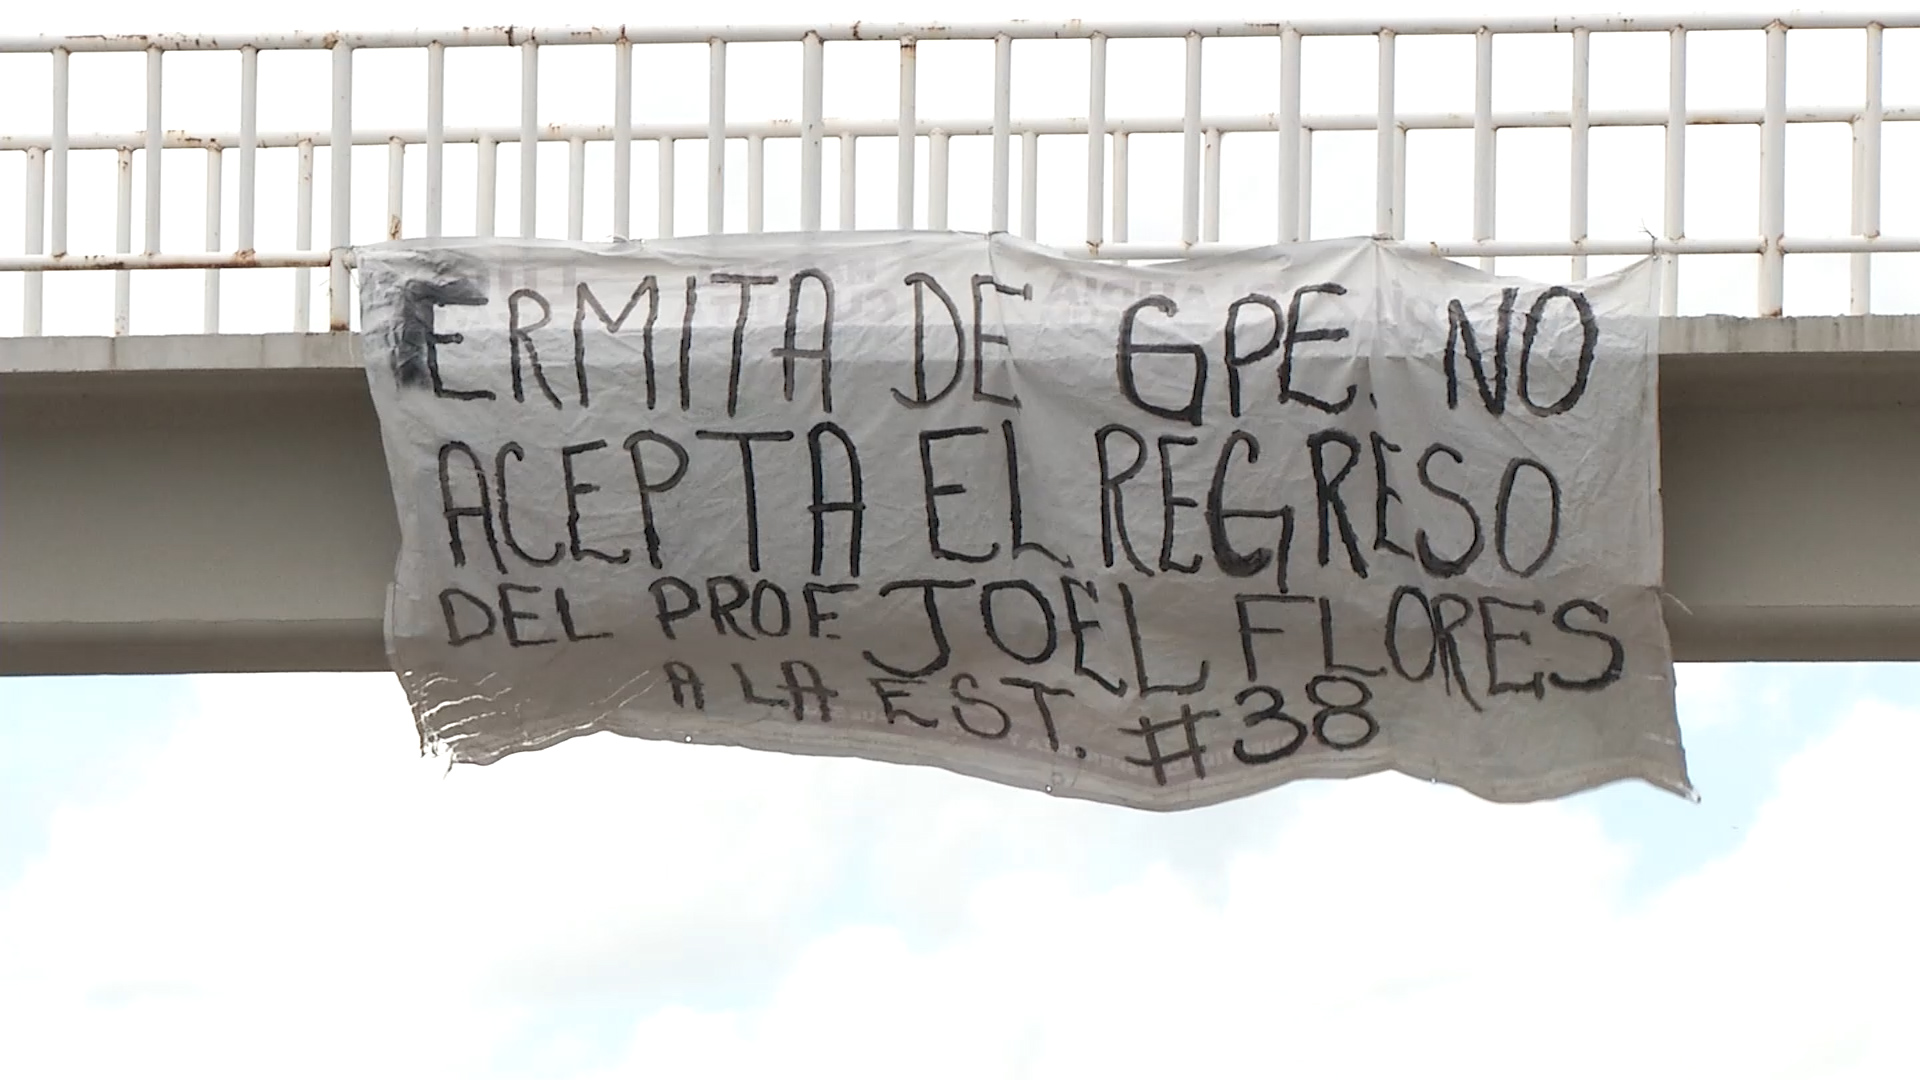 ERMITA DE GPE. NO
ACEPTA EL REGRESO
DEL PROF JOEL FLORES
A LA EST. #38